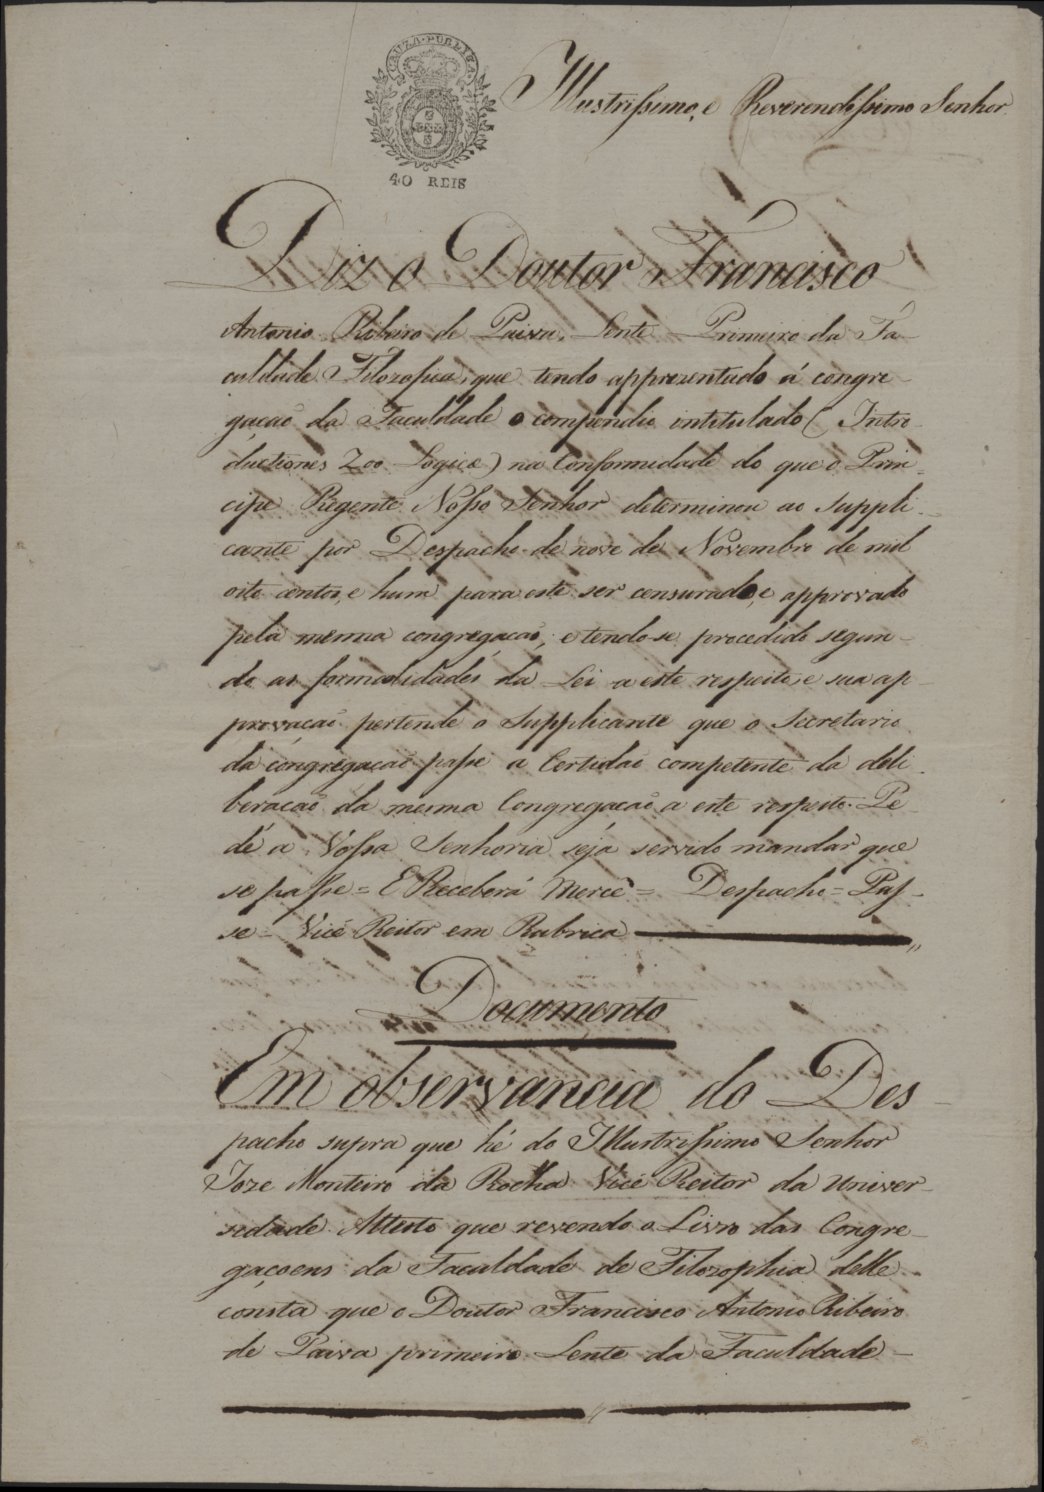 CAUZA PUBLICA
40 REIS
Illustrissimo, e Reverendissimo Senhor
Diz o Doutor Francisco
Antonio Ribeiro de Paiva, Lente Primeiro da Fa-
culdade Filozofica, que tendo apprezentado á congre-
gaçaõ da Faculdade o compendio intitulado (Intro-
ductiones Zoo Logicæ) na Conformidade do que o Prin-
cipe Regente Nosso Senhor determinou ao Suppli-
cante por Despacho de nove de Novembro de mil
oito centos, e hum para este ser censurado, e approvado
pela mesma congregaçaõ; e tendo-se procedido segun-
do as formalidades da Lei a este respeito, e sua ap-
provaçaõ pertende o Supplicante que o Secretario
da congregaçaõ passe a Certidaõ competente da deli-
beraçaõ da mesma Congregaçaõ a este respeito. Pe-
de a Vóssa Senhoria sejá servido mandar que
se passe = E Receberá Mercê = Despacho = Pas-
se = Vice Reitor em Rubrica
Documento
Em observancia do Des-
pacho supra que hé do Illustrissimo Senhor
Joze Monteiro da Rocha Vice Reitor da Univer-
sedade Attesto que revendo o Livro das Congre-
gaçoens da Faculdade de Filozophia delle
consta que o Doutor Francisco Antonio Ribeiro
de Paiva primeiro Lente da Faculdade